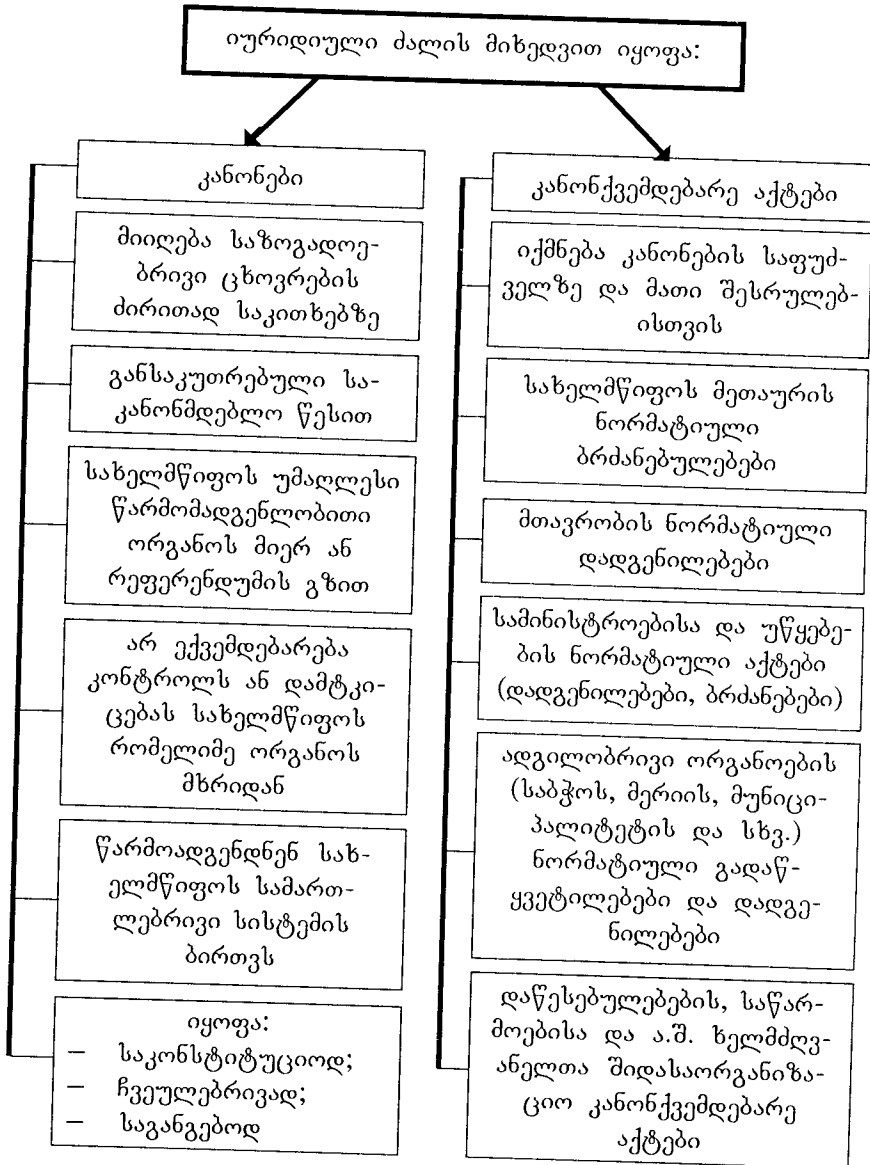 იურიდიული ძალის მიხედვით იყოფა:
კანონები
მიიღება საზოგადოე-
ბრივი ცხოვრების
ძირითად საკითხებზე
განსაკუთრებული სა-
კანონმდებლო წესით
სახელმწიფოს უმაღლესი
წარმომადგენლობითი
ორგანოს მიერ ან
რეფერენდუმის გზით
არ ექვემდებარება
კონტროლს ან დამტკი-
ცებას სახელმწიფოს
რომელიმე ორგანოს
მხრიდან
წარმოადგენდნენ სახ-
ელმწიფოს სამართ-
ლებრივი სისტემის
ბირთვს
იყოფა:
– საკონსტიტუციოდ;
– ჩვეულებრივად;
– საგანგებოდ
კანონქვემდებარე აქტები
იქმნება კანონების საფუძ-
ველზე და მათი შესრულებ-
ისთვის
სახელმწიფოს მეთაურის
ნორმატიული
ბრძანებულებები
მთავრობის ნორმატიული
დადგენილებები
სამინისტროებისა და უწყებე-
ბის ნორმატიული აქტები
(დადგენილებები, ბრძანებები)
ადგილობრივი ორგანოების
(საბჭოს, მერიის, მუნიცი-
პალიტეტის და სხვ.)
ნორმატიული გადაწ-
ყვეტილებები და დადგე-
ნილებები
დაწესებულებების, საწარ-
მოებისა და ა.შ. ხელმძღვ-
ანელთა შიდასაორგანიზა-
ციო კანონქვემდებარე
აქტები